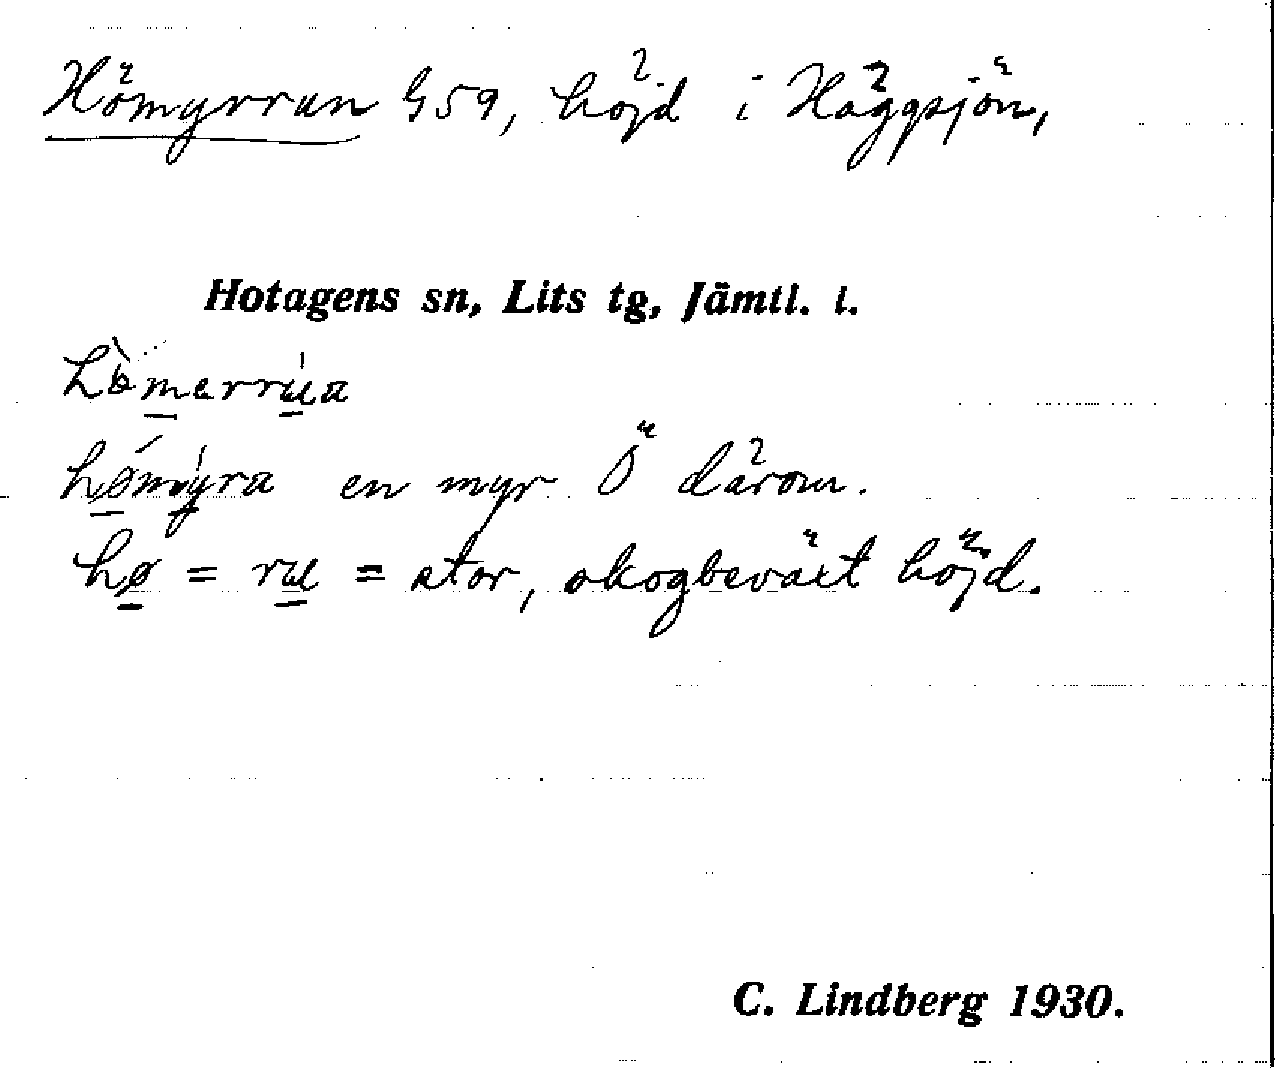 Hömyrrun 459, höjd i Häggsjön,
Hotagens sn, Lits tg, Jämtl. l.
hòmerrua
hømyra en myr Ö därom.
hø = ru = stor, skogbeväxt höjd.
C. Lindberg 1930.